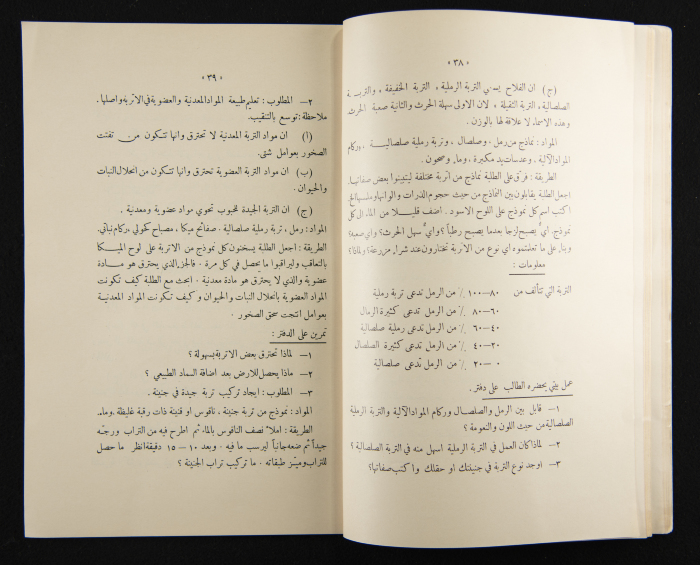 « ٣٨ »
(ج) ان الفلاح يسمي التربة الرملية « التربة الخفيفة » والتربة
الصلصالية « التربة الثقيلة » لان الاولى سهلة الحرث والثانية صعبة الحرث
وهذه الاسماء لا علاقة لها بالوزن .
المواد : نماذج من رمل ، وصلصال ، وتربة رملية صلصالية ، وركام
المواد الآلية ، وعدسات يد مكبرة ، وماء وصحون .
الطريقة : فرّق على الطلبة نماذج من اتربة مختلفة ليتبينوا بعض صفاتها .
اجعل الطلبة يقابلون بين النماذج من حيث حجوم الذرات والوانها وملمسها الخ
اكتب اسم كل نموذج على اللوح الاسود . اضف قليلا من الماء الى كل
نموذج . ايٌّ يصبح لزجا بعدما يصبح رطباً ؟ وايٌّ سهل الحرث ؟ واي صعبه ؟
وبناء على ما تعلمتموه اي نوع من الاتربة تختارون عند شراء مزرعة ؟ ولماذا ؟
معلومات :
التربة التي تتألف من ٨٠—١٠٠ ٪ من الرمل تدعى تربة رملية
٦٠—٨٠ ٪ من الرمل تدعى كثيرة الرمال
٤٠—٦٠ ٪ من الرمل تدعى رملية صلصالية
٢٠—٤٠ ٪ من الرمل تدعى كثيرة الصلصال
٠ —٢٠ ٪ من الرمل تدعى صلصالية
عمل بيتي يحضره الطالب على دفتر .
١— قابل بين الرمل والصلصال وركام المواد الآلية والتربة الرملية
الصلصالية من حيث اللون والنعومة ؟
٢— لماذا كان العمل في التربة الرملية اسهل منه في التربة الصلصالية ؟
٣— اوجد نوع التربة في جنينتك او حقلك واكتب صفاتها ؟
« ٣٩ »
٢— المطلوب : تعليم طبيعة المواد المعدنية والعضوية في الاتربة واصلها .
ملاحظة : توسع بالتنقيب .
(ا) ان مواد التربة المعدنية لا تحترق وانها تتكون من تفتت
الصخور بعوامل شتى .
(ب) ان مواد التربة العضوية تحترق وانها تتكون من انحلال النبات
والحيوان .
(ج) ان التربة الجيدة للحبوب تحوي مواد عضوية ومعدنية .
المواد : رمل ، تربة رملية صلصالية . صفائح ميكا ، مصباح كحولي ركام نباتي .
الطريقة : اجعل الطلبة يسخنون كل نموذج من الاتربة على لوح الميكا
بالتعاقب وليراقبوا ما يحصل في كل مرة . فالجزء الذي يحترق هو مادة
عضوية والذي لا يحترق هو مادة معدنية . ابحث مع الطلبة كيف تكونت
المواد العضوية بانحلال النبات والحيوان وكيف تكونت المواد المعدنية
بعوامل انتجت سحق الصخور .
تمرين على الدفتر :
١— لماذا تحترق بعض الاتربة بسهولة ؟
٢— ماذا يحصل للارض بعد اضافة السماد الطبيعي ؟
٣— المطلوب : ايجاد تركيب تربة جيدة في جنينة .
المواد : نموذج من تربة جنينة ، ناقوس او قنينة ذات رقبة غليظة ، وماء .
الطريقة : املأ نصف الناقوس بالماء ثم اطرح فيه من التراب ورجّه
جيداً ثم ضعه جانباً ليرسب ما فيه . وبعد ١٠ — ١٥ دقيقة انظر ما حصل
للتراب وميّز طبقاته . ما تركيب تراب الجنينة ؟